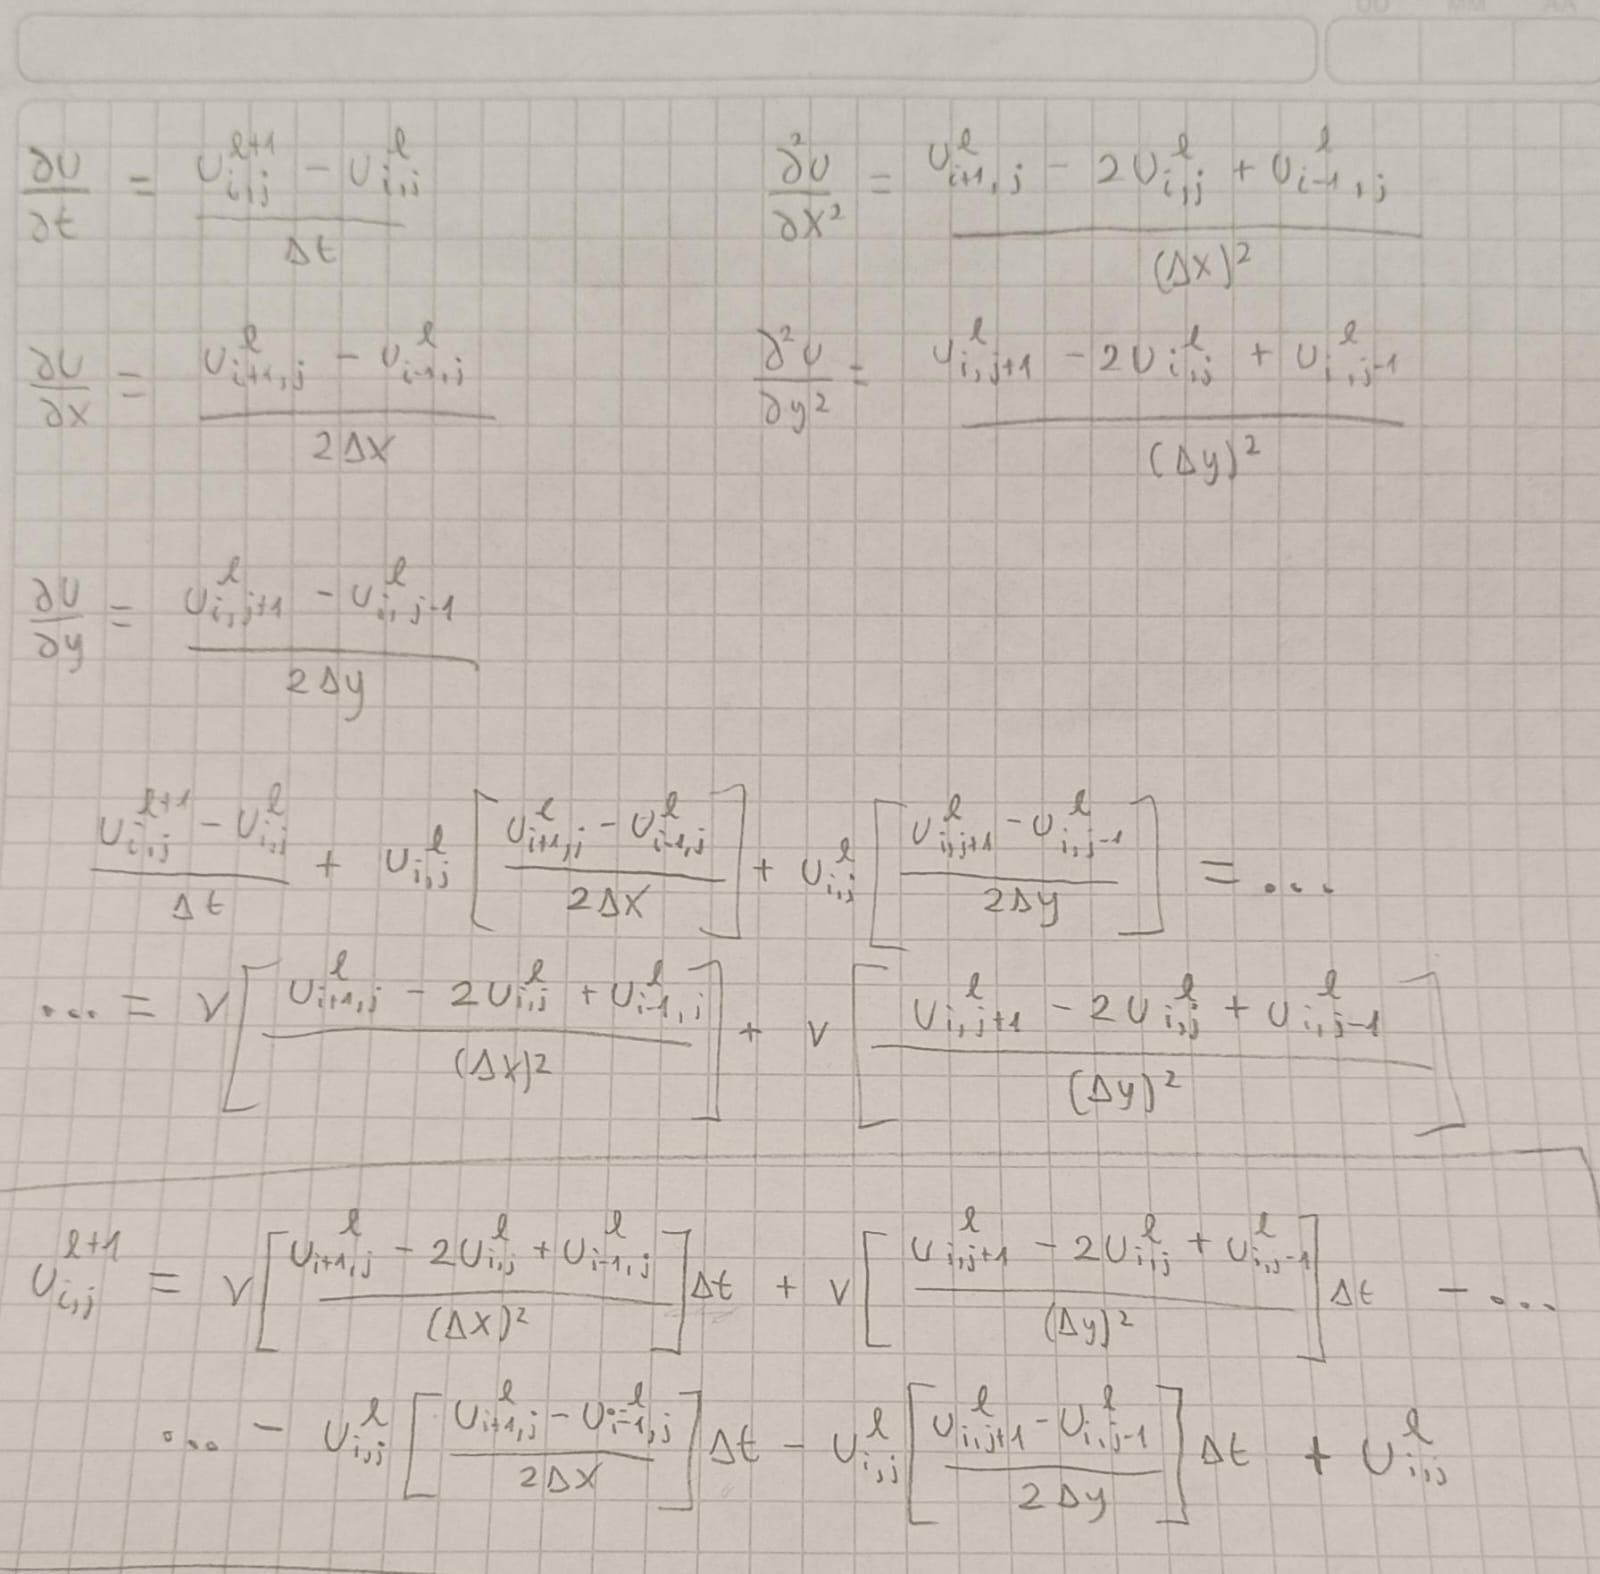 DD MM AA
∂U/∂t = (U_{i,j}^{l+1} - U_{i,j}^{l})/Δt
∂²U/∂x² = (U_{i+1,j}^{l} - 2U_{i,j}^{l} + U_{i-1,j}^{l})/(Δx)²
∂U/∂x = (U_{i+1,j}^{l} - U_{i-1,j}^{l})/2Δx
∂²U/∂y² = (U_{i,j+1}^{l} - 2U_{i,j}^{l} + U_{i,j-1}^{l})/(Δy)²
∂U/∂y = (U_{i,j+1}^{l} - U_{i,j-1}^{l})/2Δy
(U_{i,j}^{l+1} - U_{i,j}^{l})/Δt + U_{i,j}^{l} [(U_{i+1,j}^{l} - U_{i-1,j}^{l})/2Δx] + U_{i,j}^{l} [(U_{i,j+1}^{l} - U_{i,j-1}^{l})/2Δy] = ...
... = ν[(U_{i+1,j}^{l} - 2U_{i,j}^{l} + U_{i-1,j}^{l})/(Δx)²] + ν[(U_{i,j+1}^{l} - 2U_{i,j}^{l} + U_{i,j-1}^{l})/(Δy)²]
U_{i,j}^{l+1} = ν[(U_{i+1,j}^{l} - 2U_{i,j}^{l} + U_{i-1,j}^{l})/(Δx)²]Δt + ν[(U_{i,j+1}^{l} - 2U_{i,j}^{l} + U_{i,j-1}^{l})/(Δy)²]Δt - ...
... - U_{i,j}^{l} [(U_{i+1,j}^{l} - U_{i-1,j}^{l})/2Δx]Δt - U_{i,j}^{l} [(U_{i,j+1}^{l} - U_{i,j-1}^{l})/2Δy]Δt + U_{i,j}^{l}